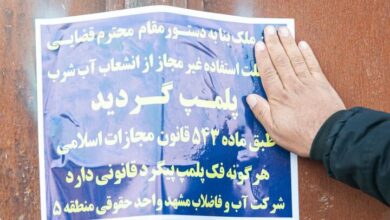 ملک بنا به دستور مقام محترم قضایی
علت استفاده غیر مجاز از انشعاب آب شرب
پلمپ گردید
طبق ماده ۵۴۳ قانون مجازات اسلامی
هرگونه فک پلمپ پیگرد قانونی دارد
شرکت آب و فاضلاب مشهد واحد حقوقی منطقه ۵